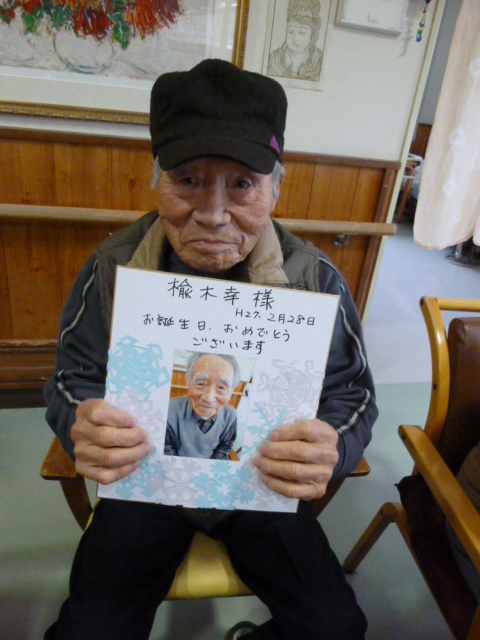 楡木幸様
H27.2月28日
お誕生日、おめでとう
ございます